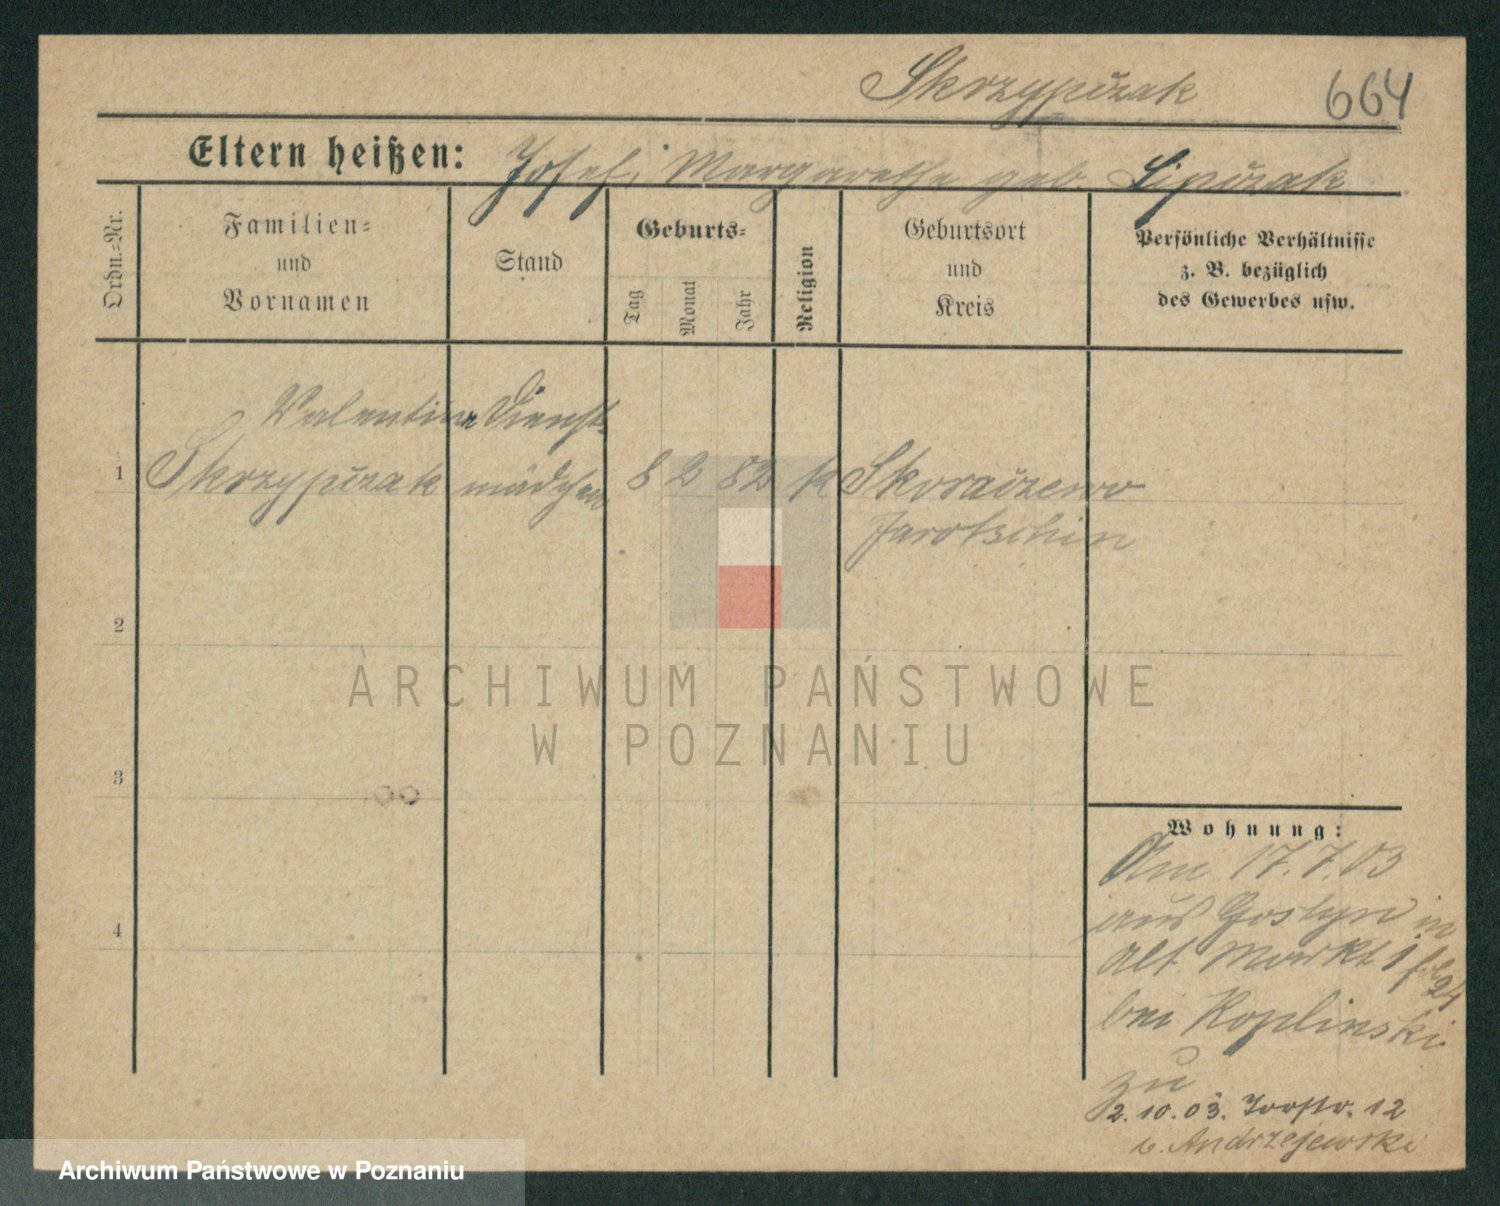 Skrzypczak
664
Eltern heißen: Josef, Margarethe geb. Lipczak
Ordn.-Nr.
Familien-
und
Vornamen
Stand
Geburts-
Tag
Monat
Jahr
Religion
Geburtsort
und
Kreis
Persönliche Verhältnisse
z. B. bezüglich
des Gewerbes usw.
Valentina Dienst-
1 Skrzypczak mädchen 8 2 82 k Skoraczewo
Jarotschin
2
3
4
Wohnung:
Am 17.7.03
aus Gostyn in
Alt. Markt
bei Koplinski
zu
2.10.03. 12
b. Andrzejewski
ARCHIWUM PAŃSTWOWE
W POZNANIU
Archiwum Państwowe w Poznaniu